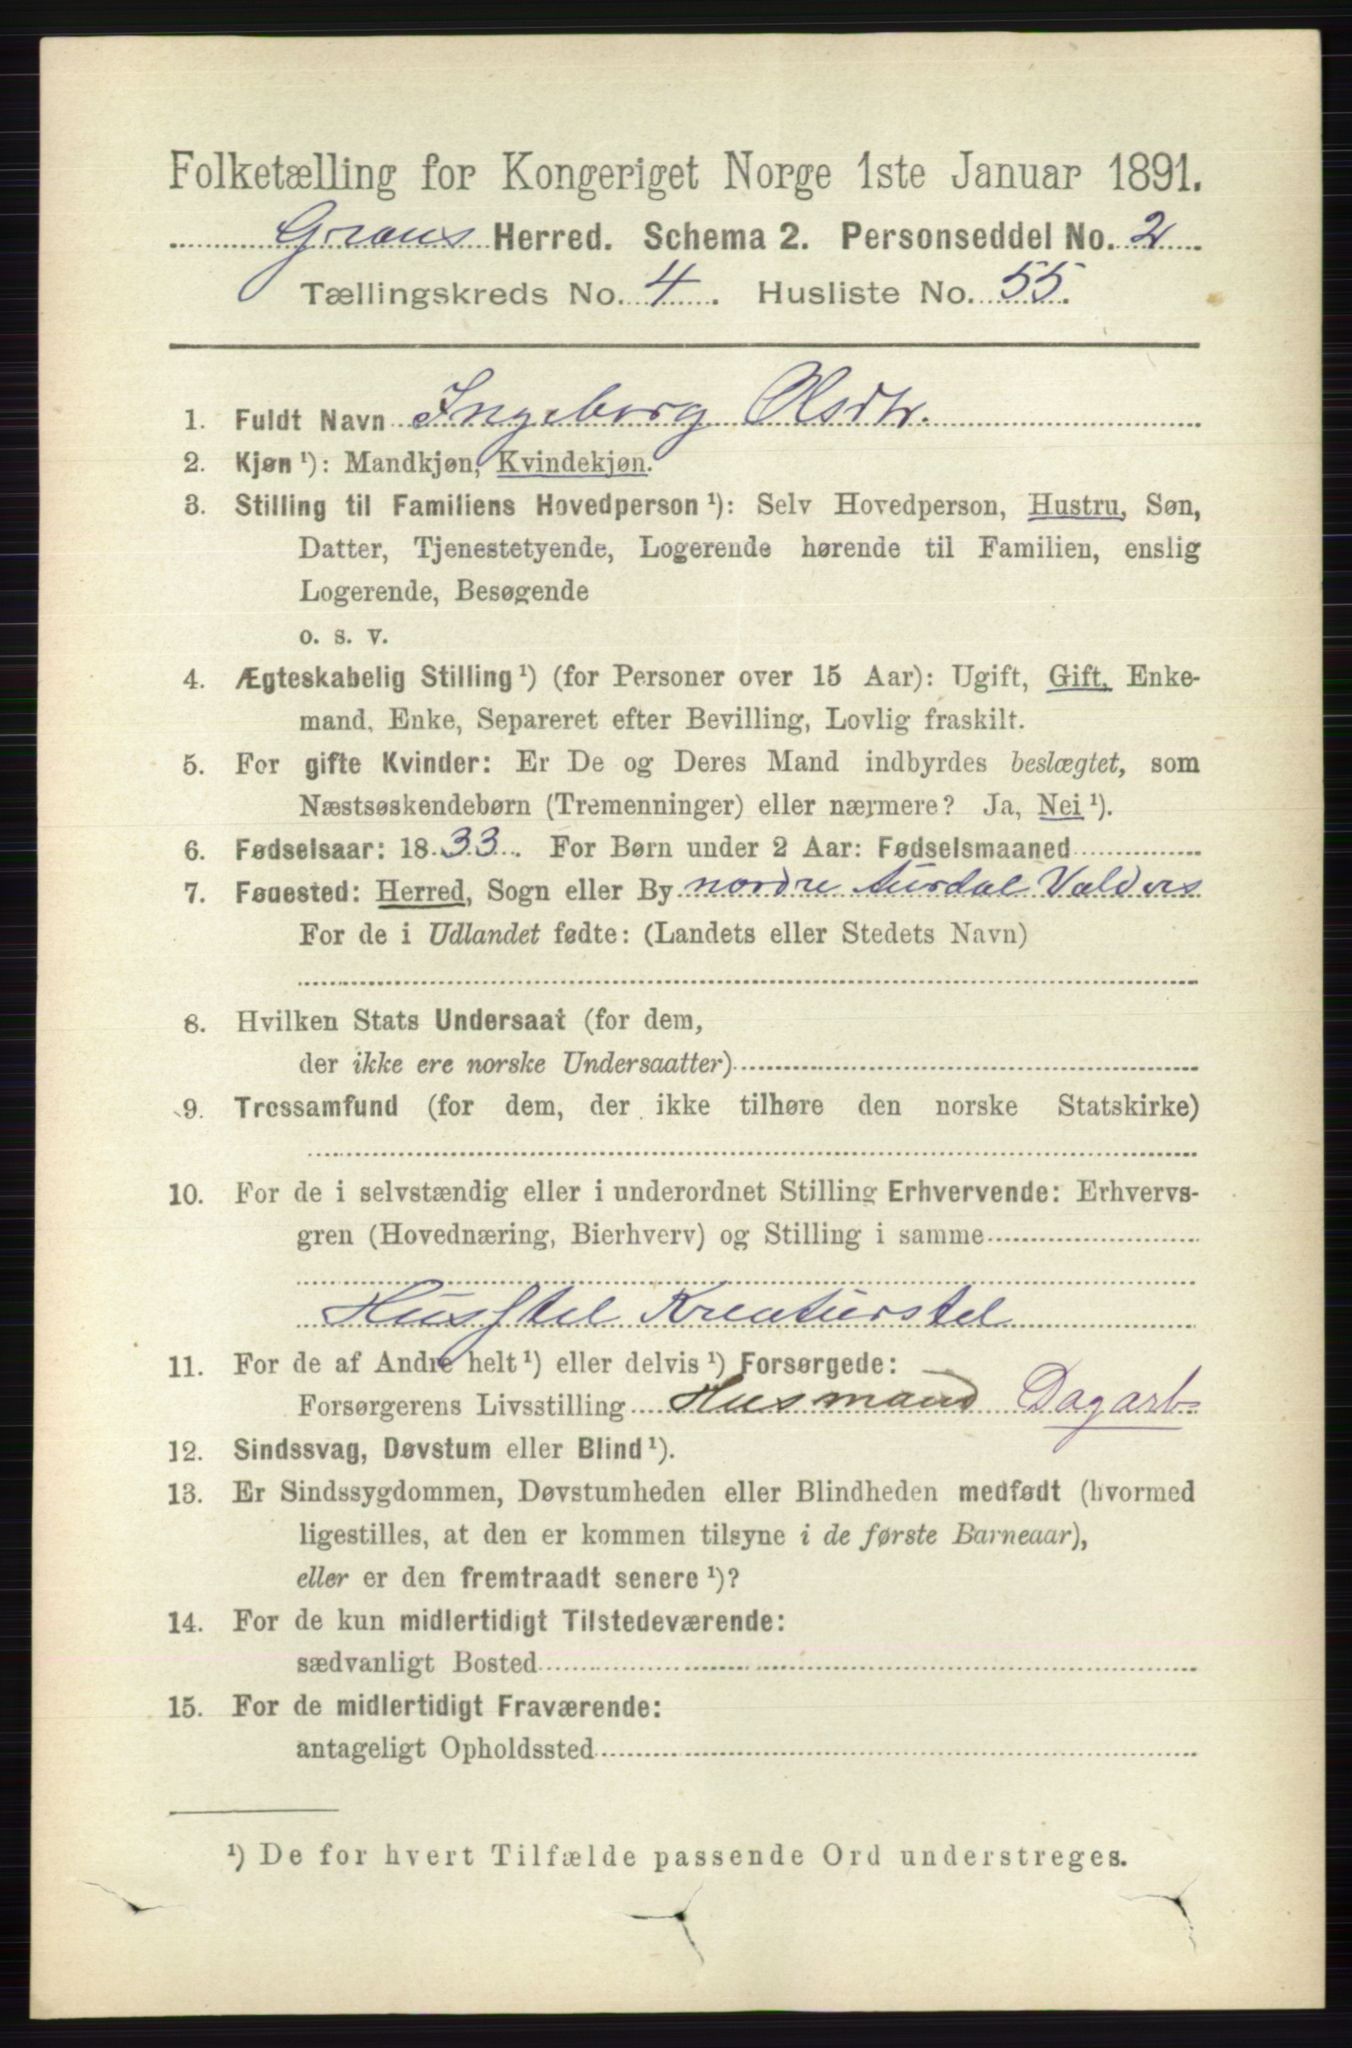 Folketælling for Kongeriget Norge 1ste Januar 1891.
Grans Herred. Schema 2. Personseddel No. 2
Tællingskreds No. 4. Husliste No. 55.
1. Fuldt Navn Ingeborg Olsdtr.
2. Kjøn ¹): Mandkjøn, Kvindekjøn.
3. Stilling til Familiens Hovedperson ¹): Selv Hovedperson, Hustru, Søn,
Datter, Tjenestetyende, Logerende hørende til Familien, enslig
Logerende, Besøgende
o. s. v.
4. Ægteskabelig Stilling ¹) (for Personer over 15 Aar): Ugift, Gift, Enke-
mand, Enke, Separeret efter Bevilling, Lovlig fraskilt.
5. For gifte Kvinder: Er De og Deres Mand indbyrdes beslægtet, som
Næstsøskendebørn (Tremenninger) eller nærmere? Ja, Nei ¹).
6. Fødselsaar: 1833. For Børn under 2 Aar: Fødselsmaaned
7. Føuested: Herred, Sogn eller By nordre Aurdal Valders
For de i Udlandet fødte: (Landets eller Stedets Navn)
8. Hvilken Stats Undersaat (for dem,
der ikke ere norske Undersaatter)
9. Trossamfund (for dem, der ikke tilhøre den norske Statskirke)
10. For de i selvstændig eller i underordnet Stilling Erhvervende: Erhvervs-
gren (Hovednæring, Bierhverv) og Stilling i samme
Husstel Kreaturstel
11. For de af Andre helt ¹) eller delvis ¹) Forsørgede:
Forsørgerens Livsstilling Husmand Dagarb.
12. Sindssvag, Døvstum eller Blind ¹).
13. Er Sindssygdommen, Døvstumheden eller Blindheden medfødt (hvormed
ligestilles, at den er kommen tilsyne i de første Barneaar),
eller er den fremtraadt senere ¹)?
14. For de kun midlertidigt Tilstedeværende:
sædvanligt Bosted
15. For de midlertidigt Fraværende:
antageligt Opholdssted
¹) De for hvert Tilfælde passende Ord understreges.